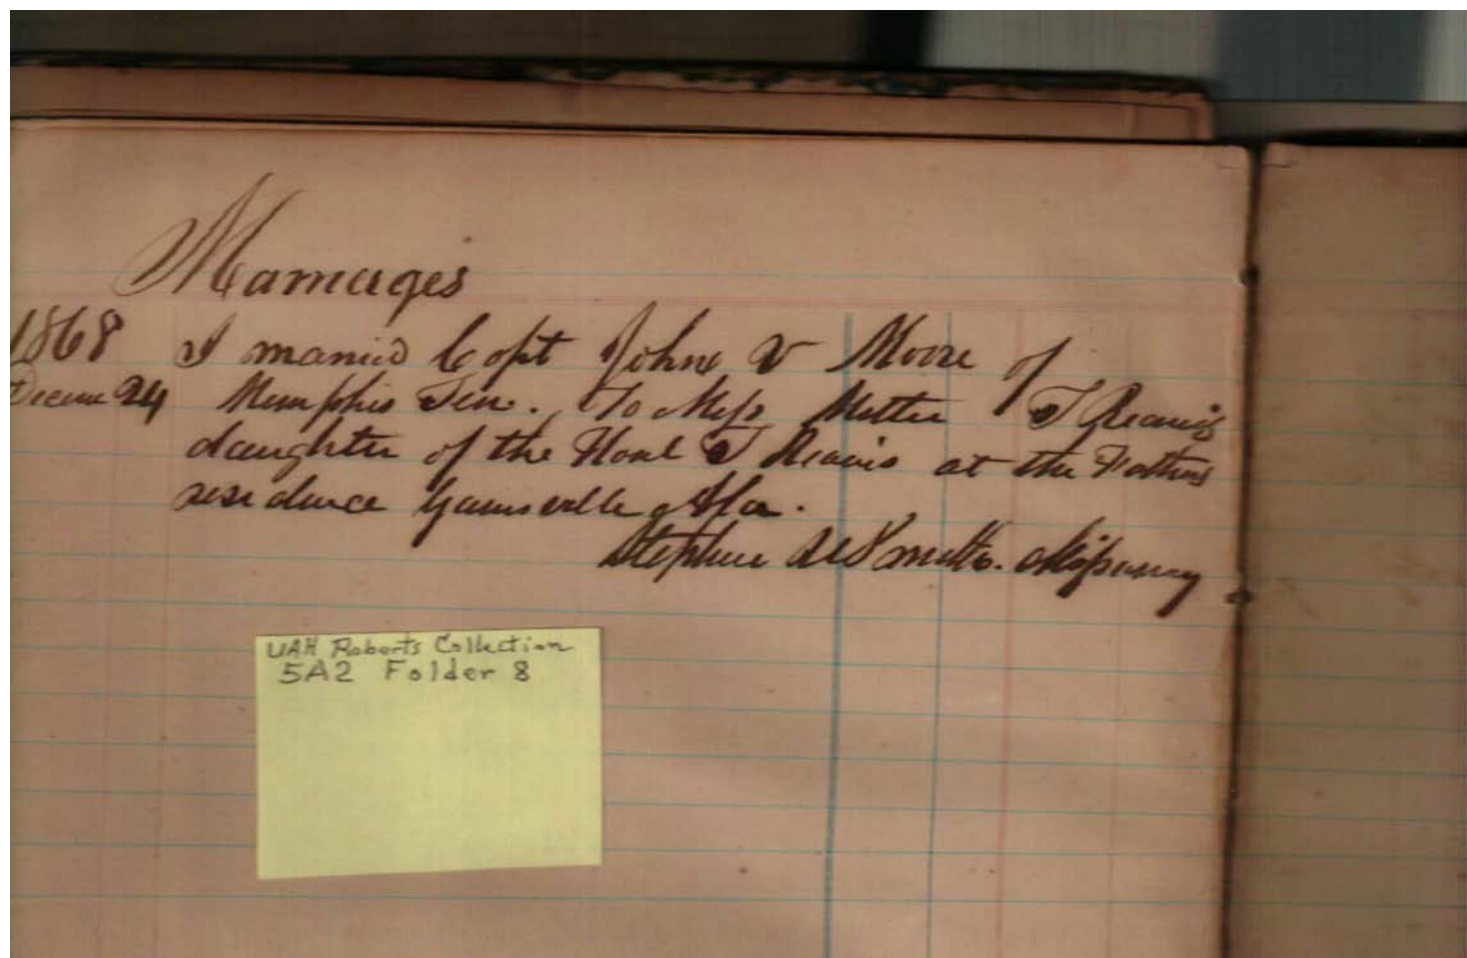 Marriages
1868 I married Capt John V Moore of
Decem 24 Memphis Ten. To Miss Mettie T Reavis
daughter of the Honl T Reavis at the Fathers
residence Gainsville Ala.
Stephen U Smith. Missionary
UAH Roberts Collection
5A2 Folder 8